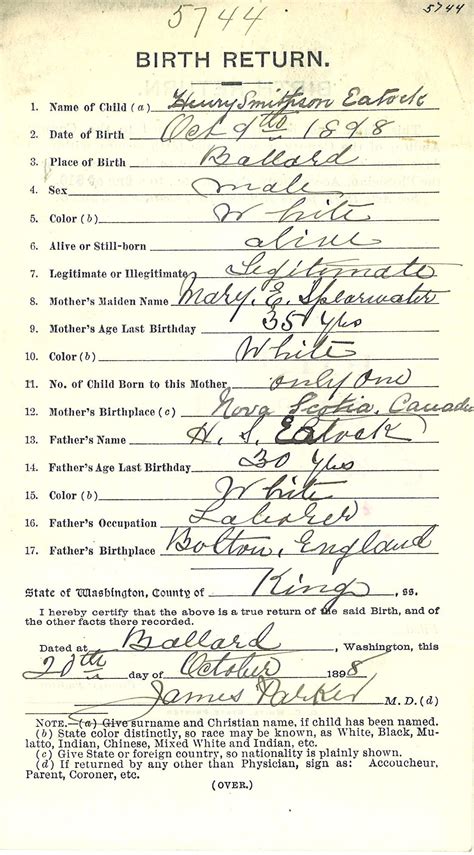 5744
5744
BIRTH RETURN.
1. Name of Child (a) Henry Smithson Eatock
2. Date of Birth Oct 9th 1898
3. Place of Birth Ballard
4. Sex male
5. Color (b) White
6. Alive or Still-born alive
7. Legitimate or Illegitimate Legitimate
8. Mother's Maiden Name Mary. E. Spearwater
9. Mother's Age Last Birthday 35 Yrs
10. Color (b) White
11. No. of Child Born to this Mother only one
12. Mother's Birthplace (c) Nova Scotia, Canada
13. Father's Name H. S. Eatock
14. Father's Age Last Birthday 30 Yrs
15. Color (b) White
16. Father's Occupation Laborer
17. Father's Birthplace Bolton, England
State of Washington, County of King, ss.
I hereby certify that the above is a true return of the said Birth, and of
the other facts there recorded.
Dated at Ballard, Washington, this
20th day of October 1898
James Parker M.D. (d)
NOTE.—(a) Give surname and Christian name, if child has been named.
(b) State color distinctly, so race may be known, as White, Black, Mu-
latto, Indian, Chinese, Mixed White and Indian, etc.
(c) Give State or foreign country, so nationality is plainly shown.
(d) If returned by any other than Physician, sign as: Accoucheur,
Parent, Coroner, etc.
(OVER.)